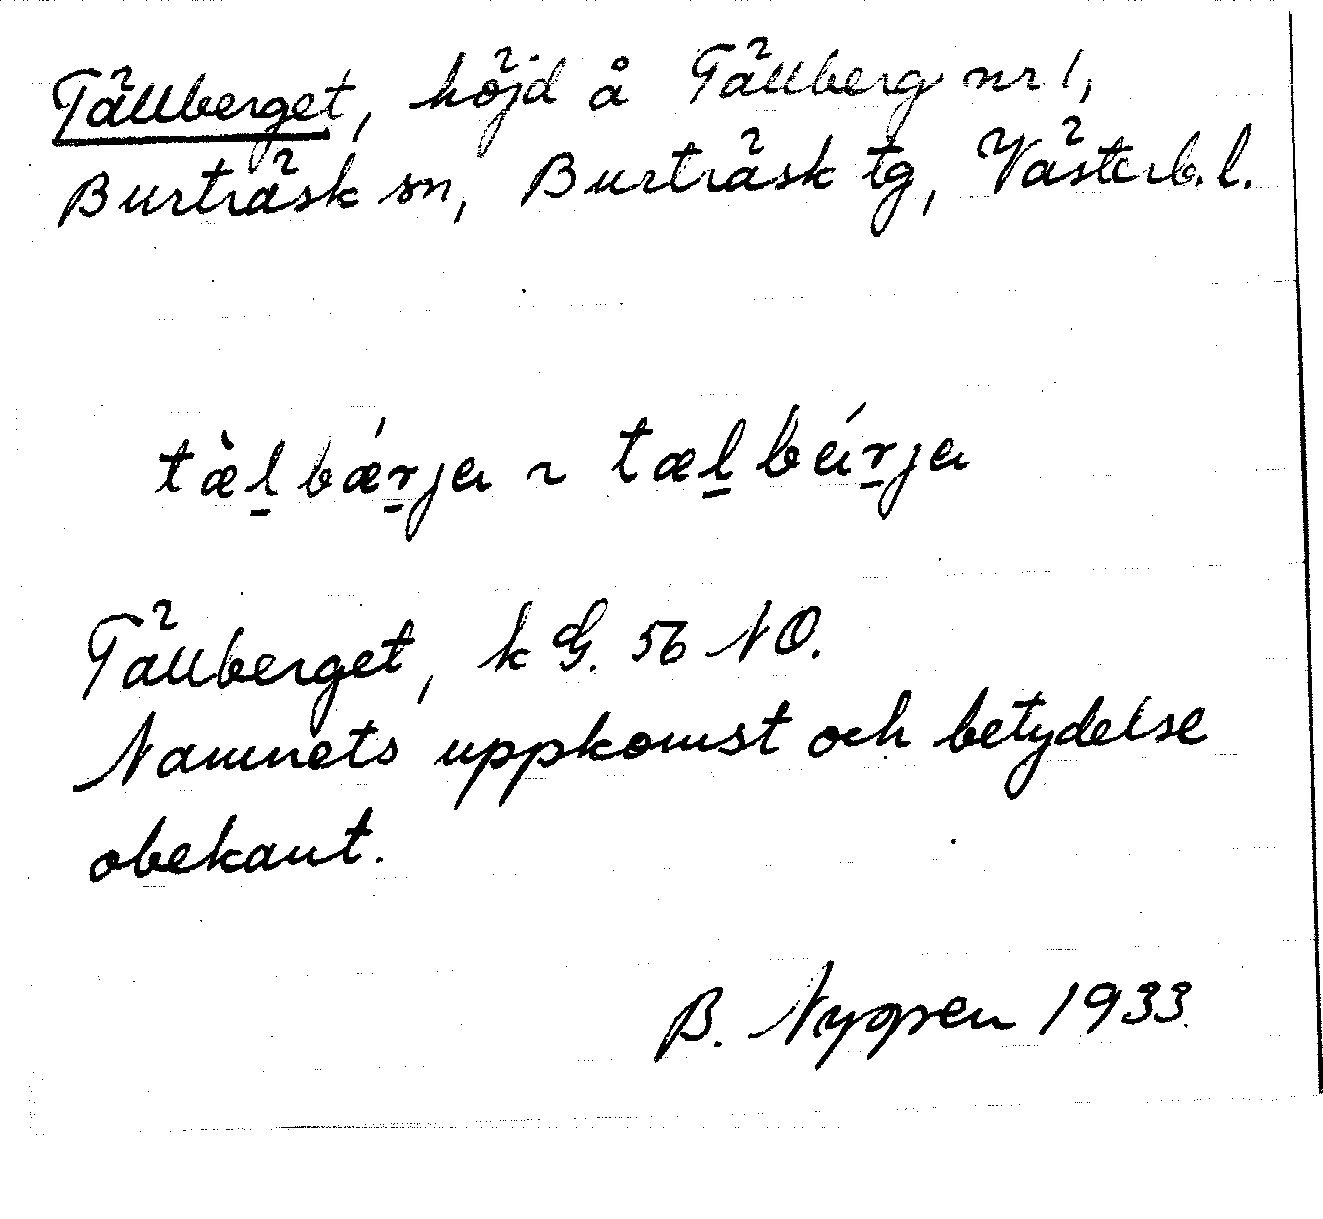 Tällberget, höjd å Tällberg nr 1,
Burträsk sn, Burträsk tg, Västerb. l.
tæ̀l̲bǽr̲ja ~ tæl̲bǽr̲ja
Tällberget, k G. 56 NO.
Namnets uppkomst och betydelse
obekant.
B. Nygren 1933.